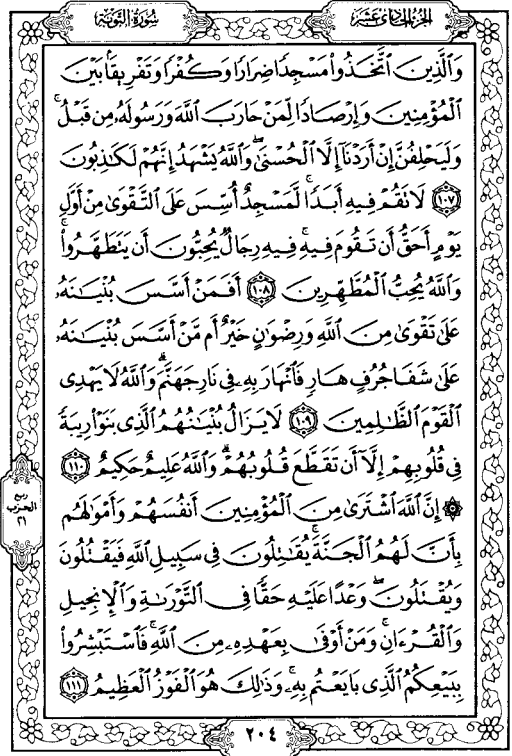 سُورَةُ التَّوْبَةِ
الجُزْءُ الحَادِى عَشَرَ
وَٱلَّذِينَ ٱتَّخَذُوا۟ مَسْجِدًا ضِرَارًا وَكُفْرًا وَتَفْرِيقًۢا بَيْنَ
ٱلْمُؤْمِنِينَ وَإِرْصَادًا لِّمَنْ حَارَبَ ٱللَّهَ وَرَسُولَهُۥ مِن قَبْلُ ۚ
وَلَيَحْلِفُنَّ إِنْ أَرَدْنَآ إِلَّا ٱلْحُسْنَىٰ ۖ وَٱللَّهُ يَشْهَدُ إِنَّهُمْ لَكَٰذِبُونَ
﴿١٠٧﴾ لَا تَقُمْ فِيهِ أَبَدًا ۚ لَّمَسْجِدٌ أُسِّسَ عَلَى ٱلتَّقْوَىٰ مِنْ أَوَّلِ
يَوْمٍ أَحَقُّ أَن تَقُومَ فِيهِ ۚ فِيهِ رِجَالٌ يُحِبُّونَ أَن يَتَطَهَّرُوا۟ ۚ
وَٱللَّهُ يُحِبُّ ٱلْمُطَّهِّرِينَ ﴿١٠٨﴾ أَفَمَنْ أَسَّسَ بُنْيَٰنَهُۥ
عَلَىٰ تَقْوَىٰ مِنَ ٱللَّهِ وَرِضْوَٰنٍ خَيْرٌ أَم مَّنْ أَسَّسَ بُنْيَٰنَهُۥ
عَلَىٰ شَفَا جُرُفٍ هَارٍ فَٱنْهَارَ بِهِۦ فِى نَارِ جَهَنَّمَ ۗ وَٱللَّهُ لَا يَهْدِى
ٱلْقَوْمَ ٱلظَّٰلِمِينَ ﴿١٠٩﴾ لَا يَزَالُ بُنْيَٰنُهُمُ ٱلَّذِى بَنَوْا۟ رِيبَةً
فِى قُلُوبِهِمْ إِلَّآ أَن تَقَطَّعَ قُلُوبُهُمْ ۗ وَٱللَّهُ عَلِيمٌ حَكِيمٌ ﴿١١٠﴾
۞ إِنَّ ٱللَّهَ ٱشْتَرَىٰ مِنَ ٱلْمُؤْمِنِينَ أَنفُسَهُمْ وَأَمْوَٰلَهُم
بِأَنَّ لَهُمُ ٱلْجَنَّةَ ۚ يُقَٰتِلُونَ فِى سَبِيلِ ٱللَّهِ فَيَقْتُلُونَ
وَيُقْتَلُونَ ۖ وَعْدًا عَلَيْهِ حَقًّا فِى ٱلتَّوْرَىٰةِ وَٱلْإِنجِيلِ
وَٱلْقُرْءَانِ ۚ وَمَنْ أَوْفَىٰ بِعَهْدِهِۦ مِنَ ٱللَّهِ ۚ فَٱسْتَبْشِرُوا۟
بِبَيْعِكُمُ ٱلَّذِى بَايَعْتُم بِهِۦ ۚ وَذَٰلِكَ هُوَ ٱلْفَوْزُ ٱلْعَظِيمُ ﴿١١١﴾
ربع
الحزب
٢١
٢٠٤